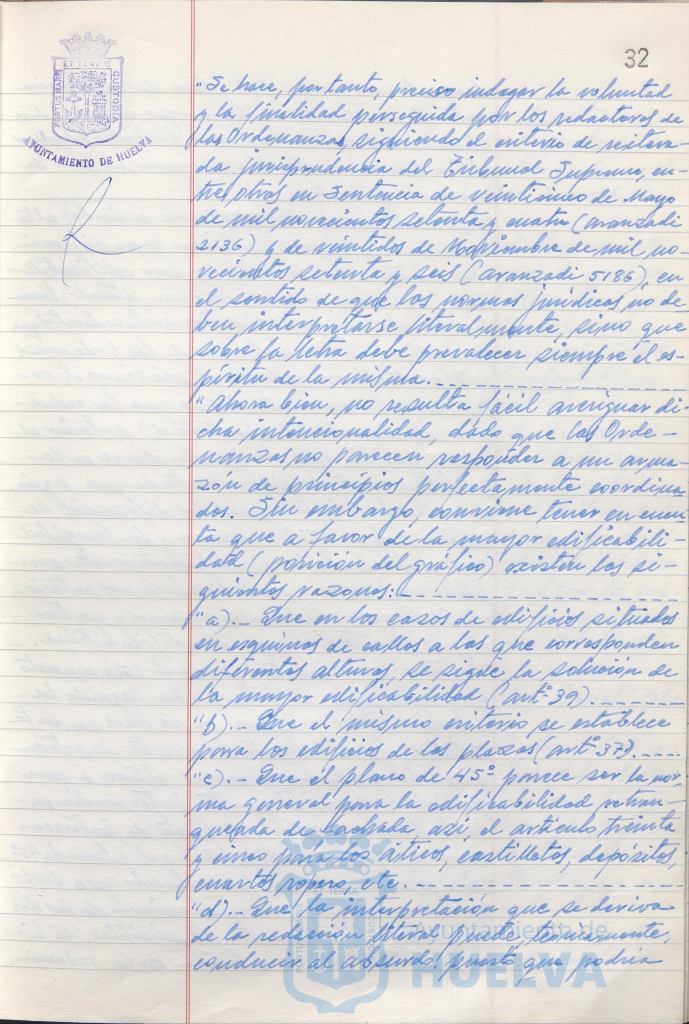 32
PORTUS MARIS
ET TERRE
CUSTODIA
AYUNTAMIENTO DE HUELVA
"Se hace, por tanto, preciso indagar la voluntad
y la finalidad perseguida por los redactores de
las Ordenanzas, siguiendo el criterio de reitera-
da jurisprudencia del Tribunal Supremo, en-
tre otros en Sentencia de veintiunco de Mayo
de mil novecientos setenta y cuatro (aranzadi
2136) y de veintidos de Noviembre de mil no-
vecientos setenta y seis (aranzadi 5186), en
el sentido de que las normas jurídicas no de-
ben interpretarse literalmente, sino que
sobre la letra debe prevalecer siempre el es-
píritu de la misma.
"Ahora bien, no resulta fácil averiguar di-
cha intencionalidad, dado que las Orde-
nanzas no parecen responder a un arma-
zón de principios perfectamente coordina-
dos. Sin embargo, conviene tener en cuen-
ta que a favor de la mayor edificabili-
dad (posición del gráfico) existen las si-
guientes razones:
"a).- Que en los casos de edificios situados
en esquinas de calles a las que corresponden
diferentes alturas, se sigue la solución de
la mayor edificabilidad (artº 39).
"b).- Que el mismo criterio se establece
para los edificios de las plazas (artº 37).
"c).- Que el plano de 45º parece ser la nor-
ma general para la edificabilidad retran-
queada de fachada, así, el artículo treinta
y cinco para los áticos, castilletes, depósitos,
cuartos ropero, etc.
"d).- Que la interpretación que se deriva
de la redacción literal puede, ciertamente,
conducir al absurdo, puesto que podría
Ayuntamiento de
HUELVA